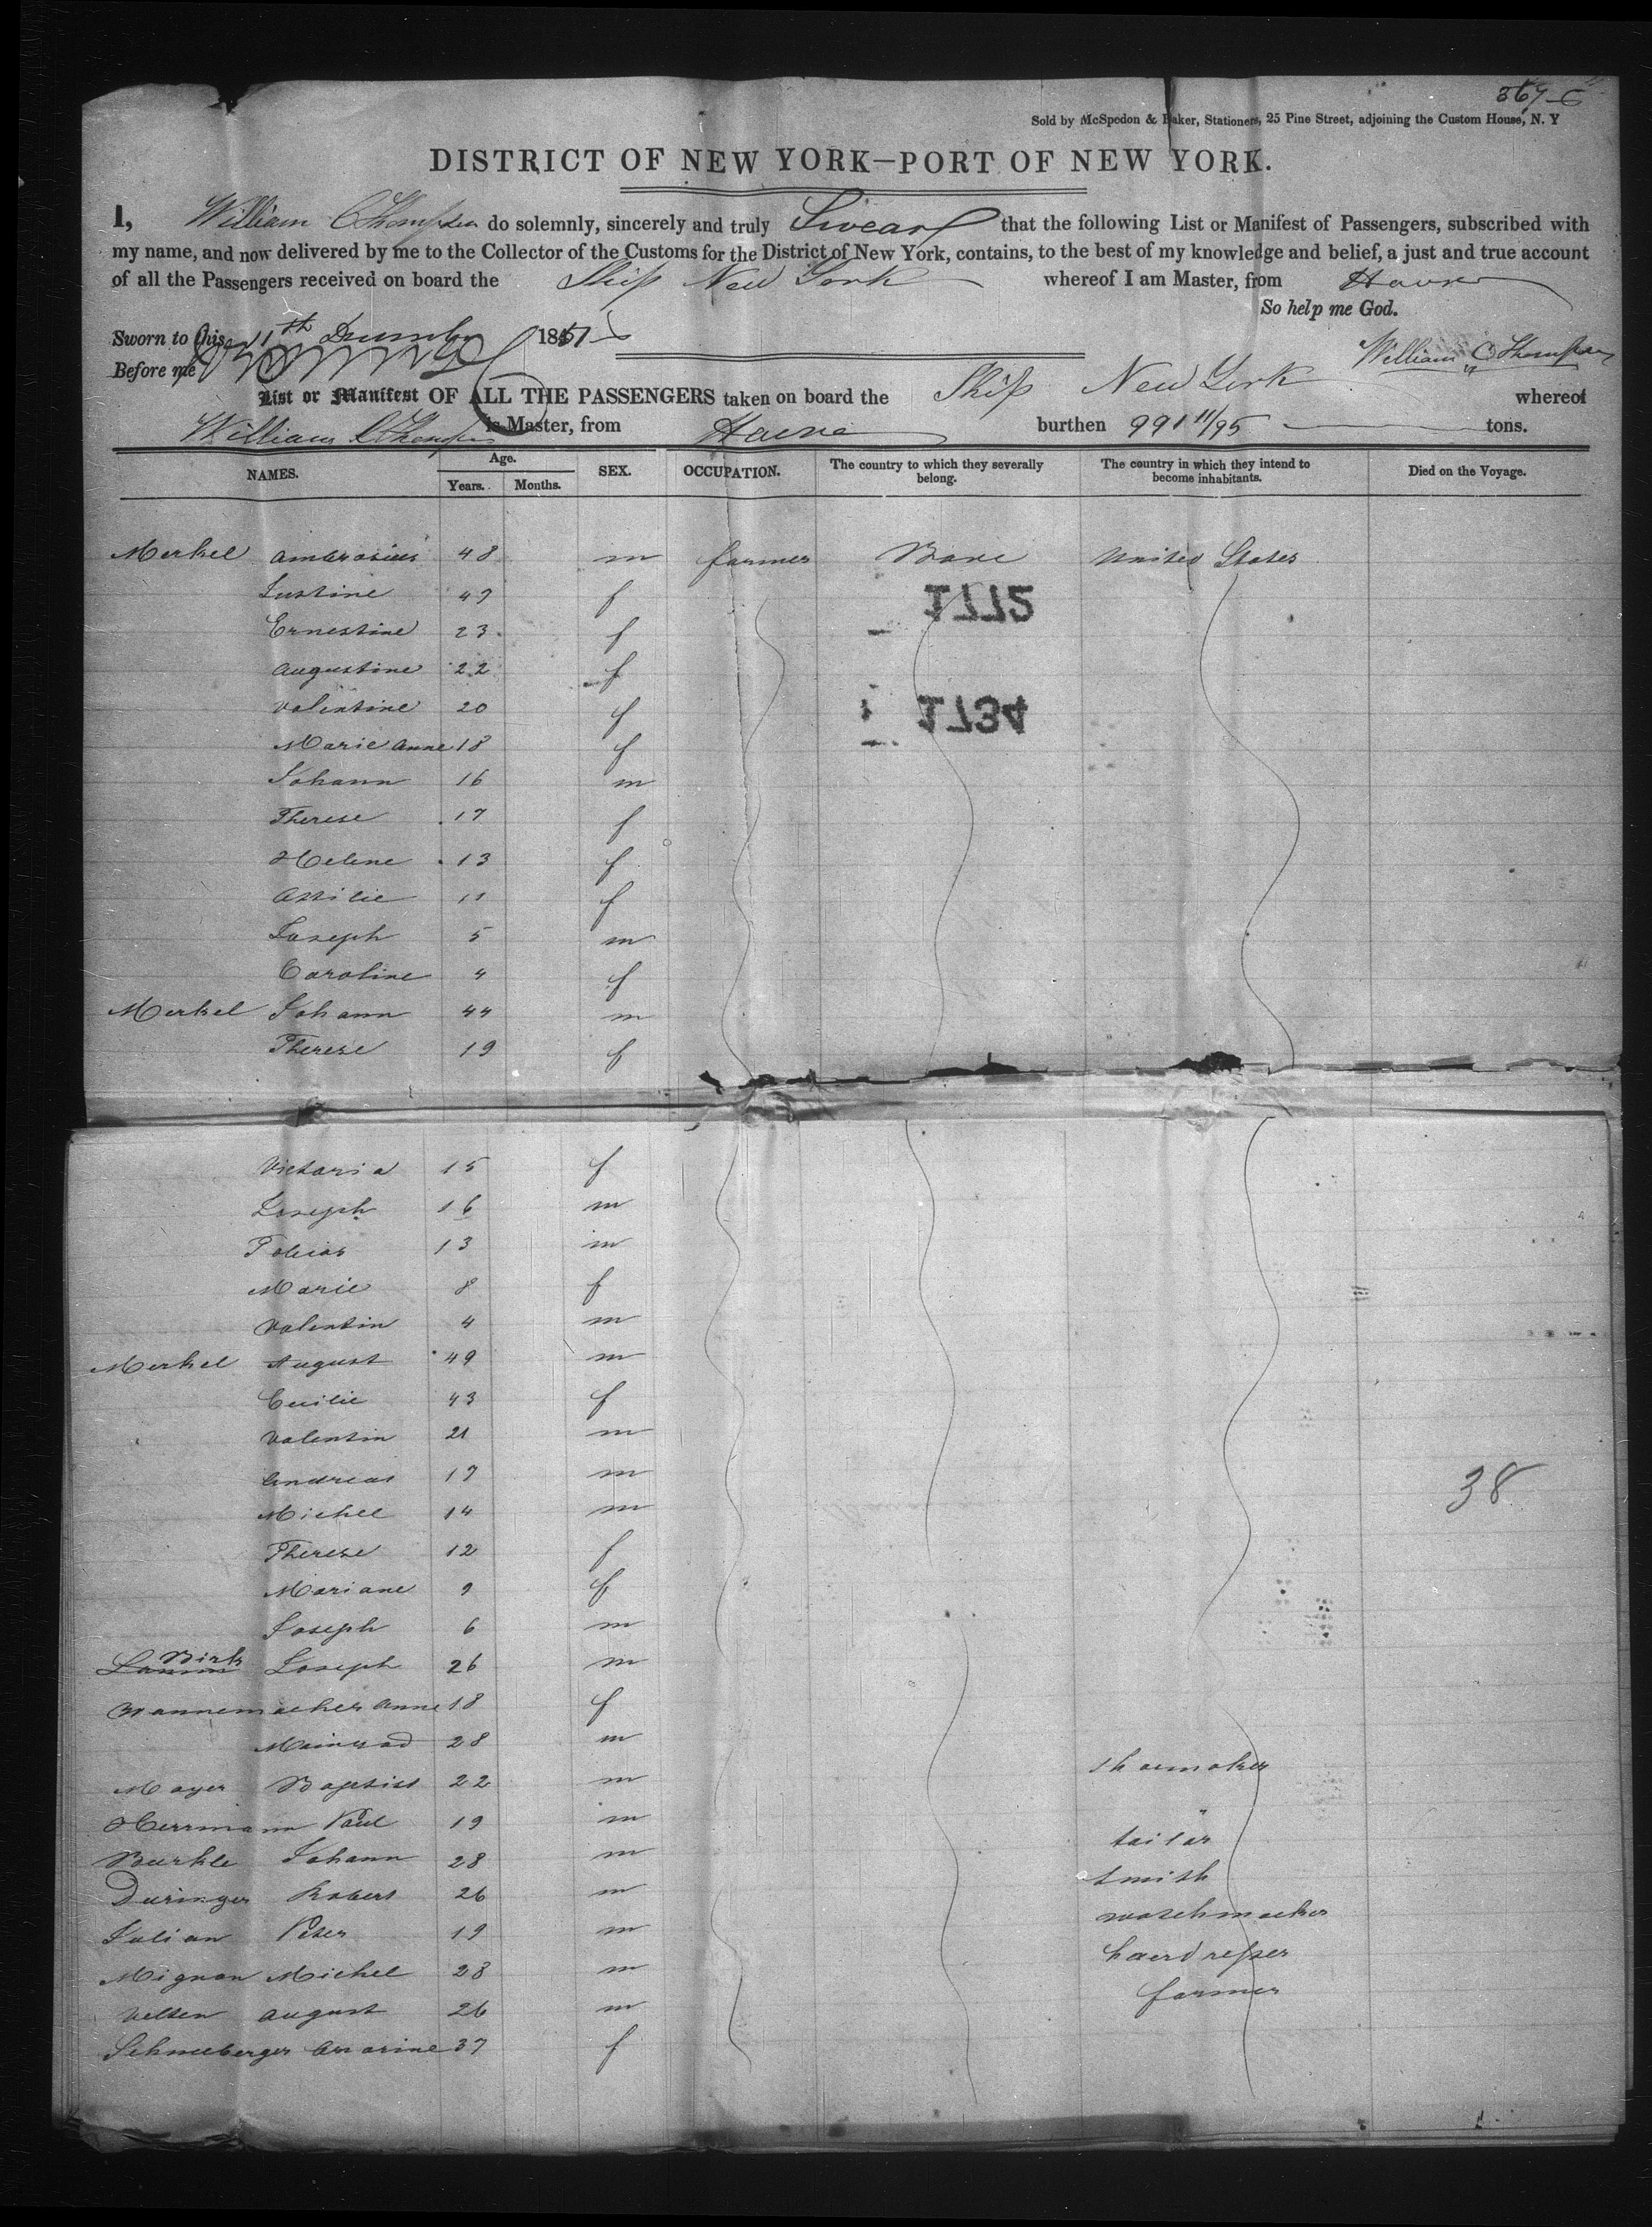 367-6
Sold by McSpedon & Baker, Stationers, 25 Pine Street, adjoining the Custom House, N. Y
DISTRICT OF NEW YORK—PORT OF NEW YORK.
I, William C Thompson do solemnly, sincerely and truly Swear that the following List or Manifest of Passengers, subscribed with
my name, and now delivered by me to the Collector of the Customs for the District of New York, contains, to the best of my knowledge and belief, a just and true account
of all the Passengers received on board the Ship New York whereof I am Master, from Havre
So help me God.
Sworn to this 11th December 1851
William C Thompson
Before me
List or Manifest OF ALL THE PASSENGERS taken on board the Ship New York whereof
William C Thompson is Master, from Havre burthen 991 11/95 tons.
NAMES. Age. Years. Months. SEX. OCCUPATION. The country to which they severally belong. The country in which they intend to become inhabitants. Died on the Voyage.
Merkel Ambrosius 48 m farmer United States
Justine 47 f 1772
Ernestine 23 f
Augustine 22 f
Valentine 20 f 1734
Marie Anne 18 f
Johann 16 m
Therese 17 f
Helene 13 f
11 f
Joseph 5 m
Caroline 4 f
Merkel Johann 44 m
Therese 19 f
Victoria 15 f
Joseph 16 m
Tobias 13 m
Marie 8 f
Valentin 4 m
Merkel August 49 m
Cecilie 43 f
Valentin 21 m
Andreas 17 m
Michel 14 m 38
Therese 12 f
Mariane 9 f
Joseph 6 m
Birk Joseph 26 m
Wannemacher Anne 18 f
Mainrad 28 m
Mayer Baptist 22 m shoemaker
Herrmann Paul 19 m "
Burkle Johann 28 m tailor
Duringer Robert 26 m smith
Julian Peter 19 m watchmacker
Mignon Michel 28 m haerdresser
Velten August 26 m farmer
Schneeberger 37 f